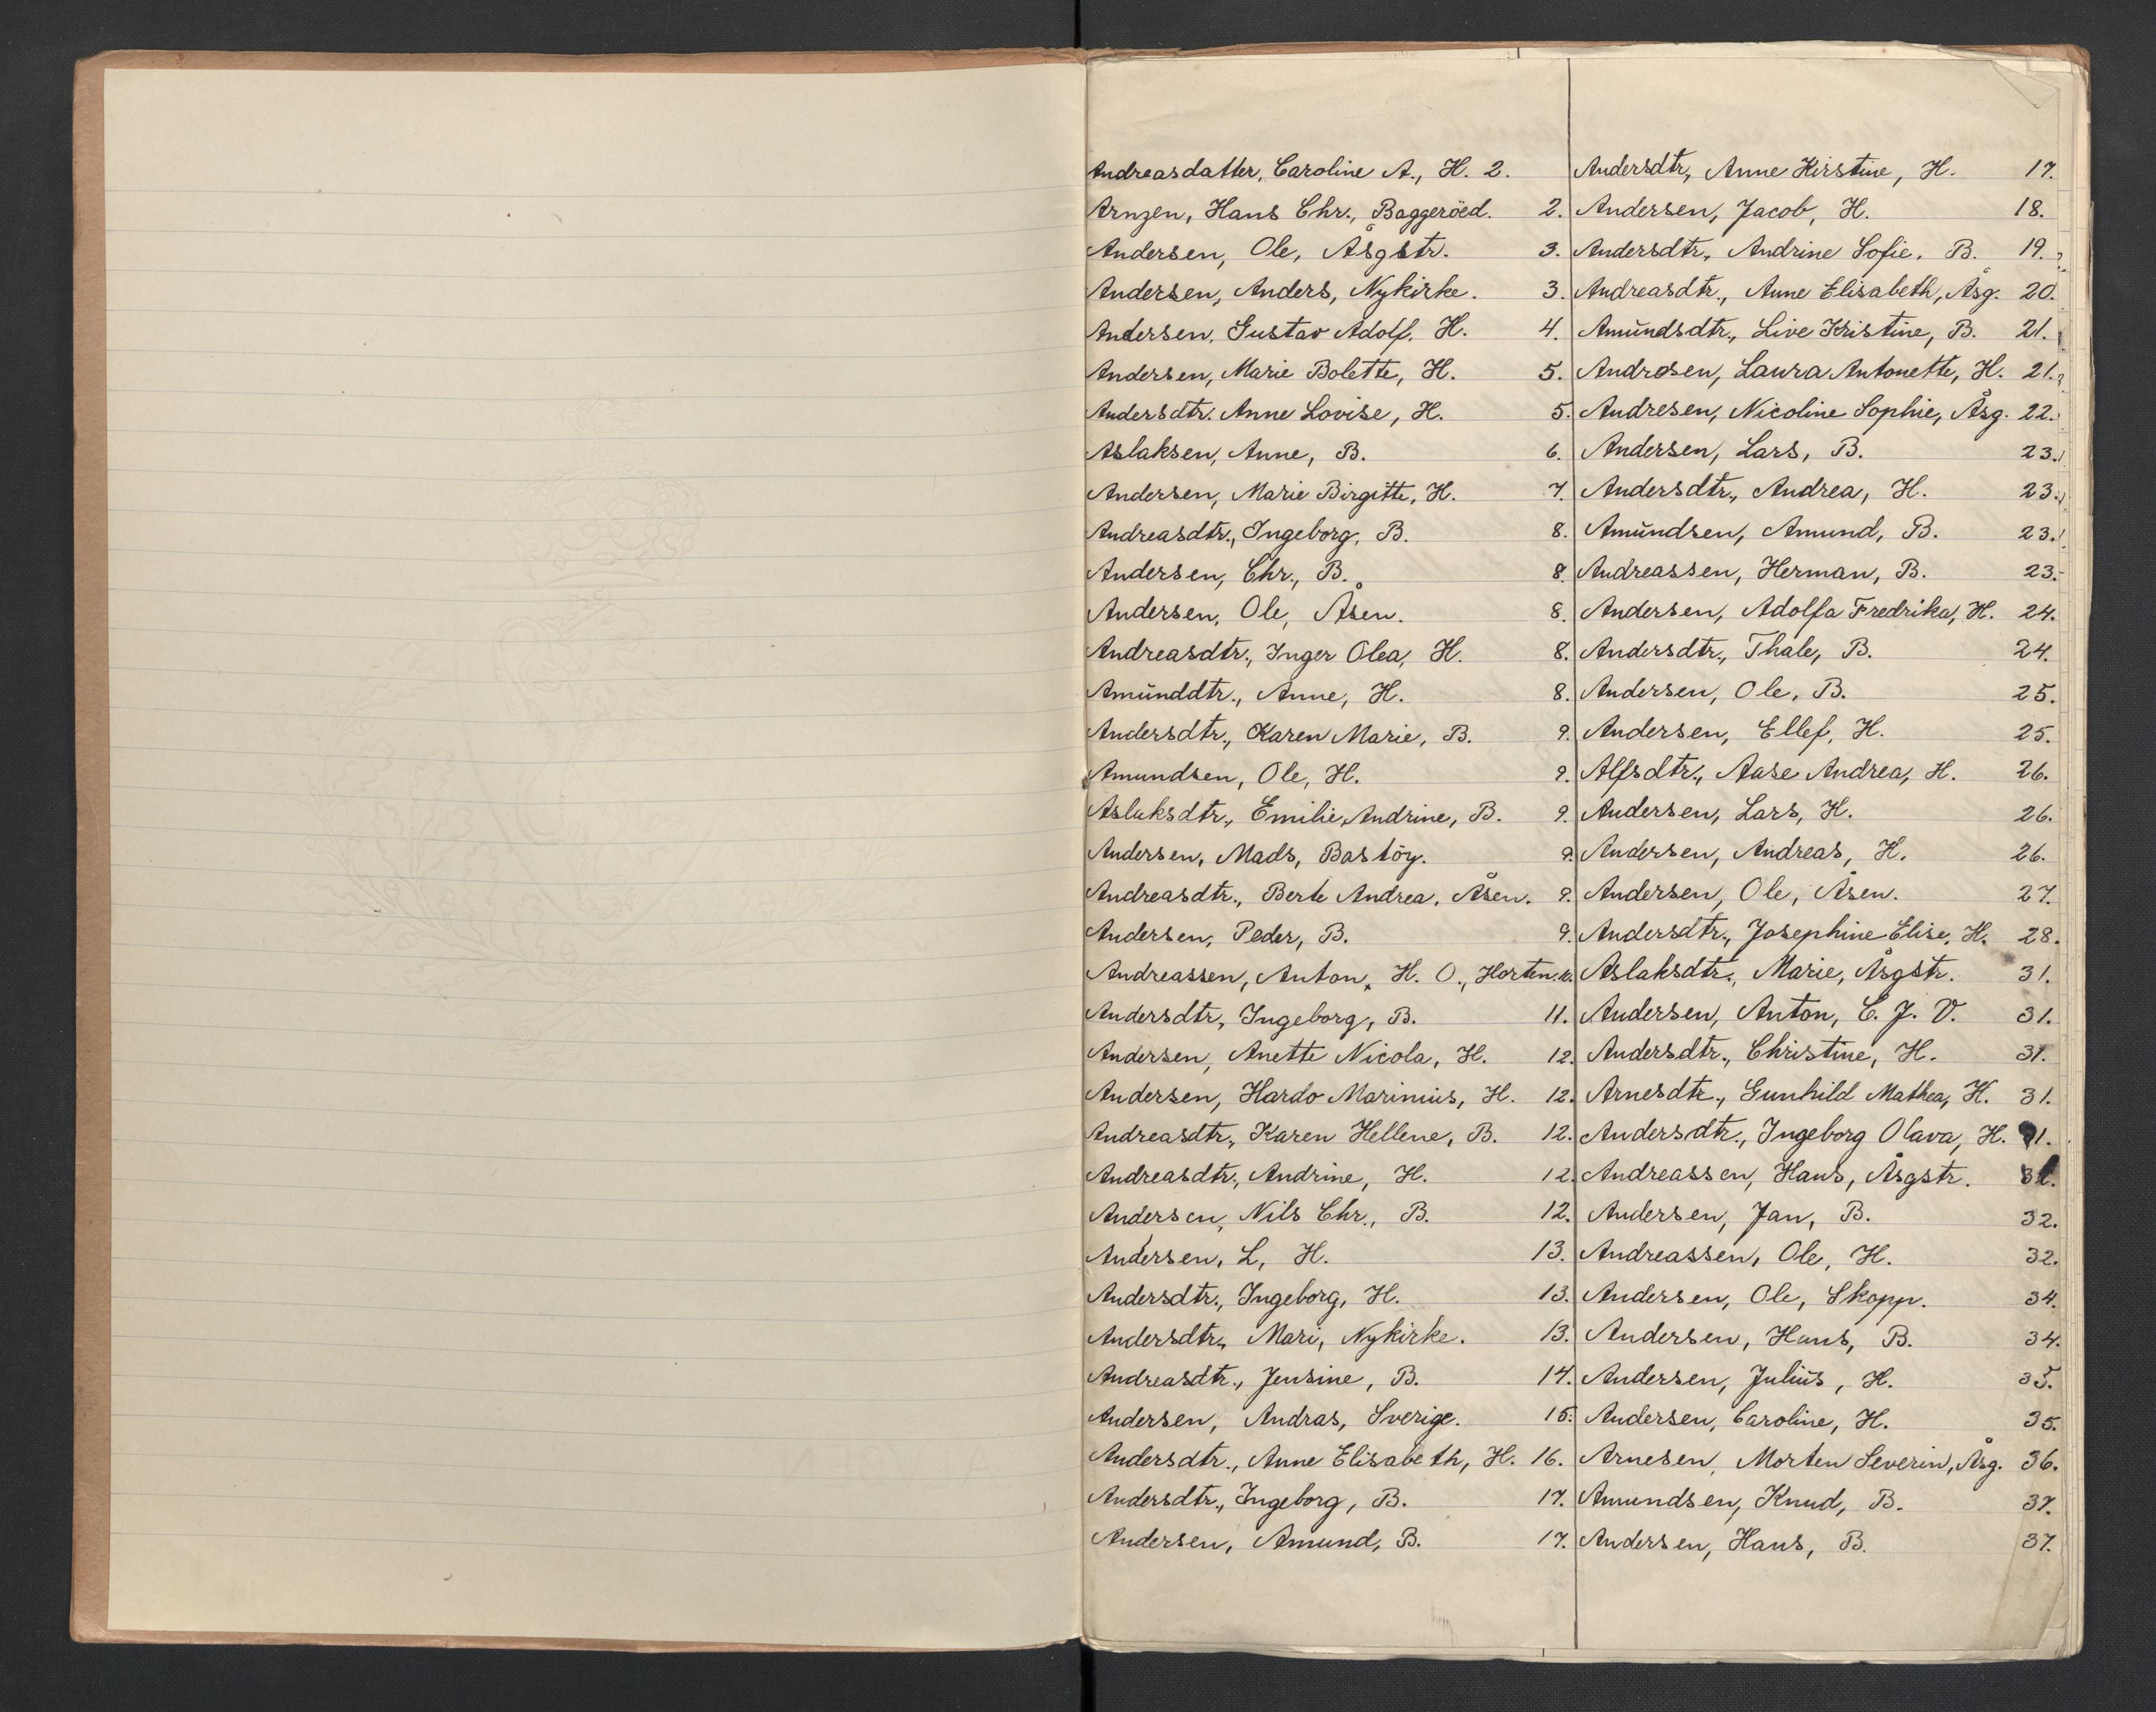 Andreasdatter, Caroline A., H. 2.
Arnzen, Hans Chr., Baggeröed. 2.
Andersen, Ole, Åsgstr. 3.
Andersen, Anders, Nykirke. 3.
Andersen, Gustav Adolf, H. 4.
Andersen, Marie Bolette, H. 5.
Andersdtr. Anne Lovise, H. 5.
Aslaksen, Anne, B. 6.
Andersen, Marie Birgitte, H. 7.
Andreasdtr., Ingeborg, B. 8.
Andersen, Chr., B. 8.
Andersen, Ole, Åsen. 8.
Andreasdtr., Inger Olea, H. 8.
Amŭnddtr., Anne, H. 8.
Andersdtr., Karen Marie, B. 9.
Amundsen, Ole, H. 9.
Aslaksdtr., Emilie Andrine, B. 9.
Andersen, Mads, Bastöy. 9.
Andreasdtr., Berte Andrea, Åsen. 9.
Andersen, Peder, B. 9.
Andreassen, Anton, H. O., Horten. 10.
Andersdtr, Ingeborg, B. 11.
Andersen, Anette Nicola, H. 12.
Andersen, Hardo Marinius, H. 12.
Andreasdtr., Karen Hellene, B. 12.
Andreasdtr., Andrine, H. 12.
Andersen, Nils Chr., B. 12.
Andersen, L, H. 13.
Andersdtr., Ingeborg, H. 13.
Andersdtr., Mari, Nykirke. 13.
Andreasdtr., Jensine, B. 14.
Andersen, Andras, Sverige. 15.
Andersdtr., Anne Elisabeth, H. 16.
Andersdtr., Ingeborg, B. 17.
Andersen, Amund, B. 17.
Andersdtr, Anne Kirstine, H. 17.
Andersen, Jacob, H. 18.
Andersdtr., Andrine Sofie, B. 19.
Andreasdtr., Anne Elisabeth, Åsg. 20.
Amŭndsdtr., Live Kristine, B. 21.
Andresen, Laura Antonette, H. 21.
Andresen, Nicoline Sophie, Åsg. 22.
Andersen, Lars, B. 23.
Andersdtr., Andrea, H. 23.
Amŭndsen, Amund, B. 23.
Andreassen, Herman, B. 23.
Andersen, Adolfa Fredrika, H. 24.
Andersdtr., Thale, B. 24.
Andersen, Ole, B. 25.
Andersen, Ellef, H. 25.
Alfsdtr., Aase Andrea, H. 26.
Andersen, Lars, H. 26.
Andersen, Andreas, H. 26.
Andersen, Ole, Åsen. 27.
Andersdtr., Josephine Elise, H. 28.
Aslaksdtr., Marie, Åsgstr. 31.
Andersen, Anton, C. J. V. 31.
Andersdtr., Christine, H. 31.
Arnesdtr., Gunhild Mathea, H. 31.
Andersdtr., Ingeborg Olava, H. 31.
Andreassen, Hans, Åsgstr.
Andersen, Jan, B. 32.
Andreassen, Ole, H. 32.
Andersen, Ole, Skopp. 34.
Andersen, Hans, B. 34.
Andersen, Juliŭs, H. 35.
Andersen, Caroline, H. 35.
Arnesen, Morten Severin, Åsg. 36.
Amundsen, Knud, B. 37.
Andersen, Hans, B. 37.